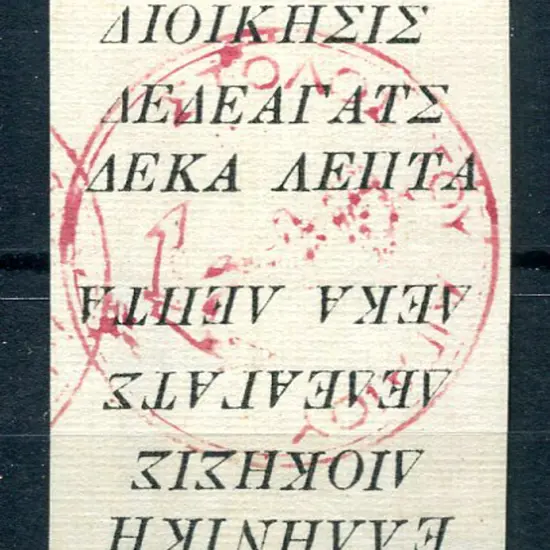 ΔΙΟΙΚΗΣΙΣ
ΔΕΔΕΑΓΑΤΣ
ΔΕΚΑ ΛΕΠΤΑ
ΕΛΛΗΝΙΚΗ
ΔΙΟΚΗΣΙΣ
ΔΕΔΕΑΓΑΤΣ
ΔΕΚΑ ΛΕΠΤΑ